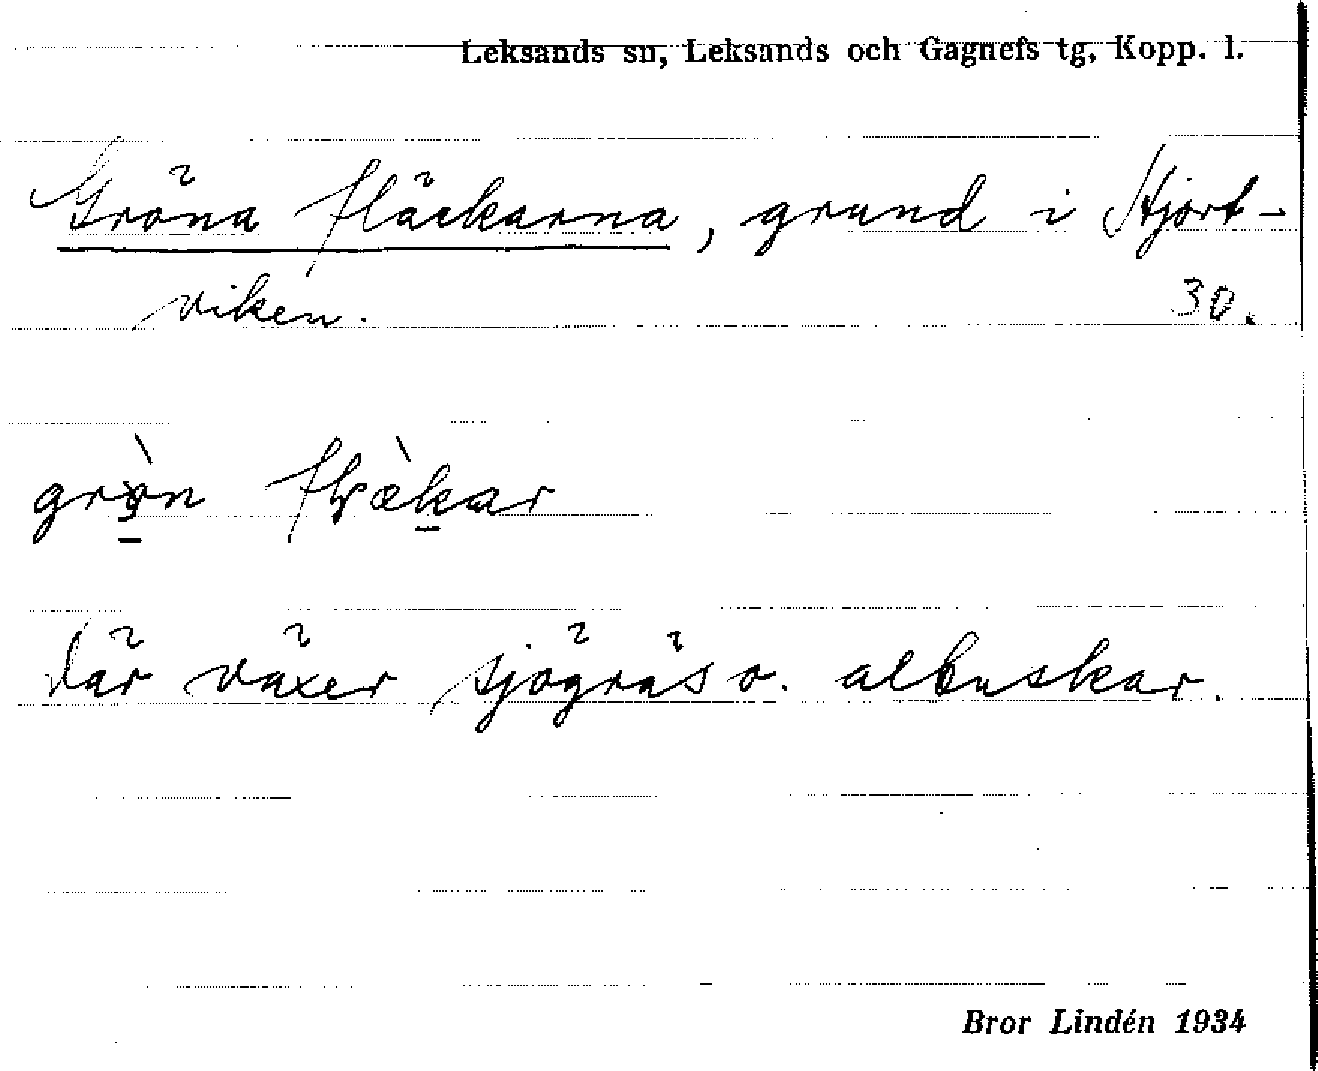 Leksands sn, Leksands och Gagnefs tg, Kopp. l.
Gröna fläckarna, grund i Hjort-
viken. 30.
flækar
Där växer sjögräs o. albuskar.
Bror Lindén 1934